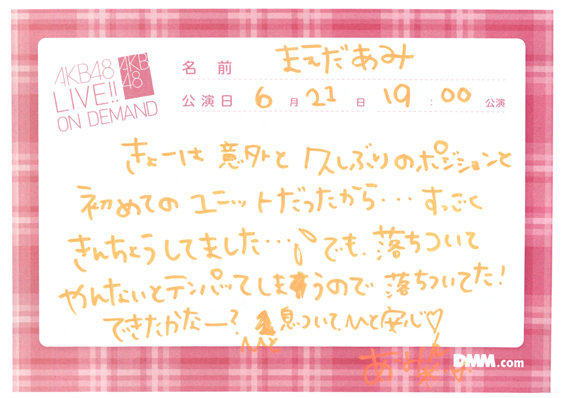 AKB48
LIVE!!
ON DEMAND
AKB
48
名前 まえだあみ
公演日 6月21日 19:00公演
きょーは意外と久しぶりのポジションと
初めてのユニットだったから・・・すっごく
きんちょうしてました・・・でも、落ちついて
やんないとテンパッてしまうので落ちついてた!
できたかなー? 一息ついて、ひと安心♡
DMM.com